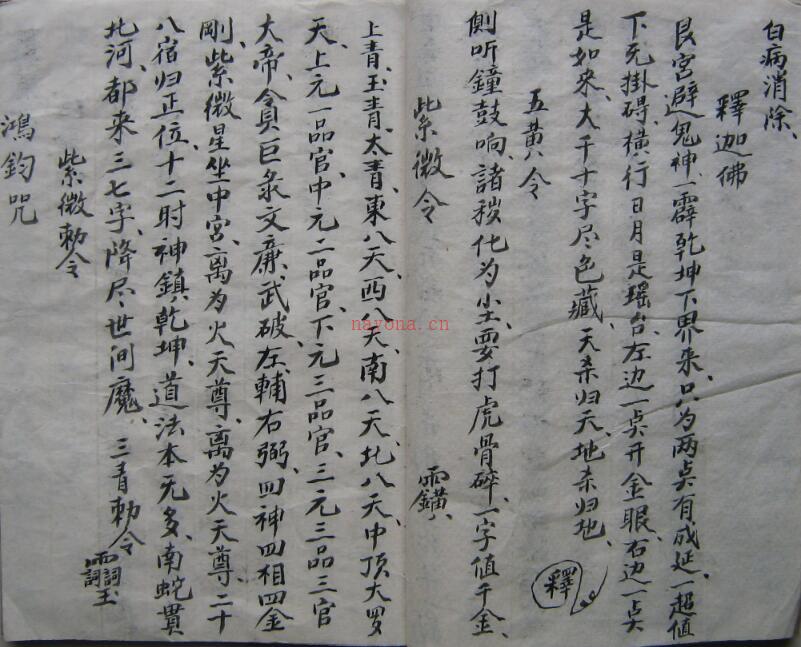 白病消除、
釋迦佛
艮宫避鬼神、一霹乾坤下界来、只为两奌有成延、一超值
下无掛碍橫行日月是瑶台、左边一奌开金眼、右边一奌
是如来、大千十字尽色藏、天杀归天、地杀归地、
釋
五黄令
侧听鐘鼓响、諸秽化为尘、要打虎骨碎、一字值千金、
紫微令
上青、玉青、太青、東八天、西八天、南八天、北八天、中顶大罗
天、上元一品官、中元二品官、下元三品官、三元三品三官
大帝、貪巨彔文廉、武破、左輔右弼、四神四相四金
剛、紫微星坐中宫、离为火天尊、离为火天尊、二十
八宿归正位、十二时神鎮乾坤、道法本无多、南蛇貫
北河、都来三七字、降尽世间魔、三青勅令
紫微勅令
鴻鈞咒
nayona.cn